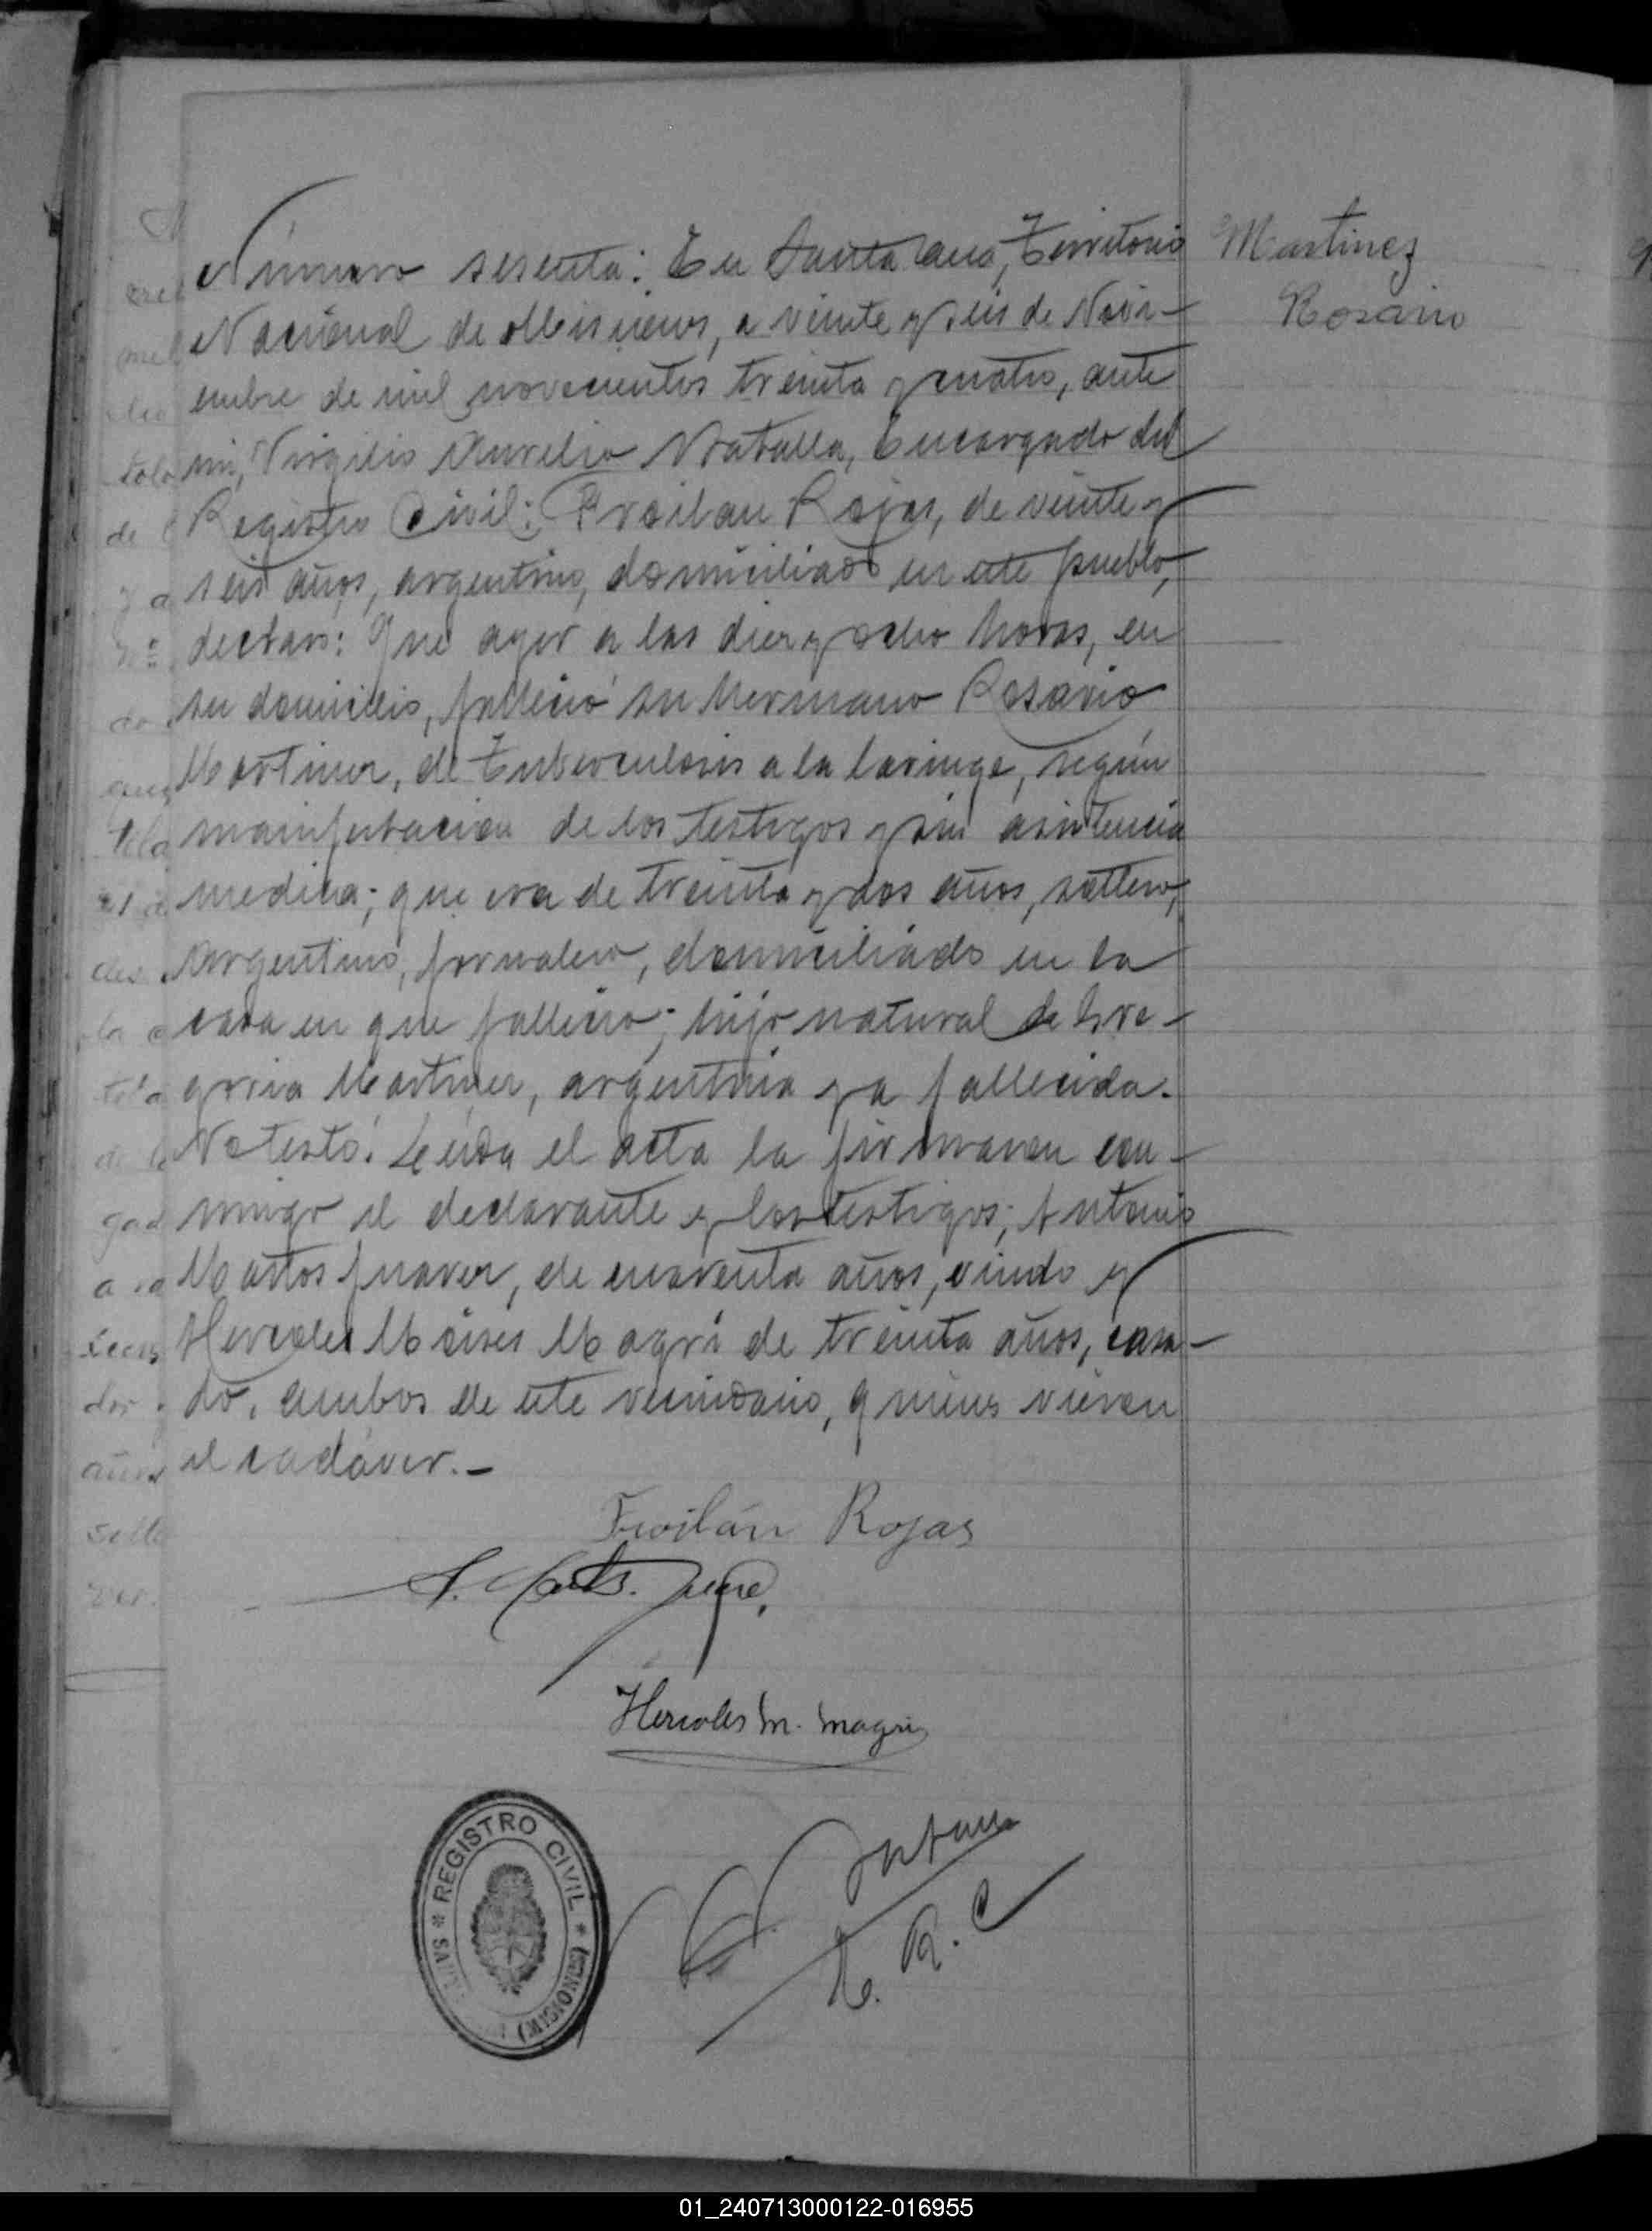 Martinez
Rosario
Número sesenta: En Santa Ana, Territorio
Nacional de Misiones, a veinte y seis de Novi-
embre de mil novecientos treinta y cuatro, ante
mi, Virgilio Aurelio Encargado del
Registro Civil: Froilan Rojas, de veinte y
seis años, argentino, domiciliado en este pueblo,
declaro: Que ayer a las diez y ocho horas, en
su domicilio, falleció su hermano Rosario
Martinez, de Tuberculosis a la laringe, según
manifestacion de los testigos y sin asistencia
medica; que era de treinta y dos años, soltero,
Argentino, jornalero, domiciliado en la
casa en que fallecio; hijo natural de Gre-
goria Martinez, argentina ya fallecida.
No testó. Leida el acta la firmaron con-
migo el declarante y los testigos; Antonio
Martos de cuarenta años, viudo y
Hercoles Moises Magri de treinta años, casa-
do, ambos de este vecindario, quienes vieron
el cadáver.-
Froilán Rojas
Hercoles M. Magri
E. R. C
REGISTRO CIVIL
(MISIONES)
01_240713000122-016955